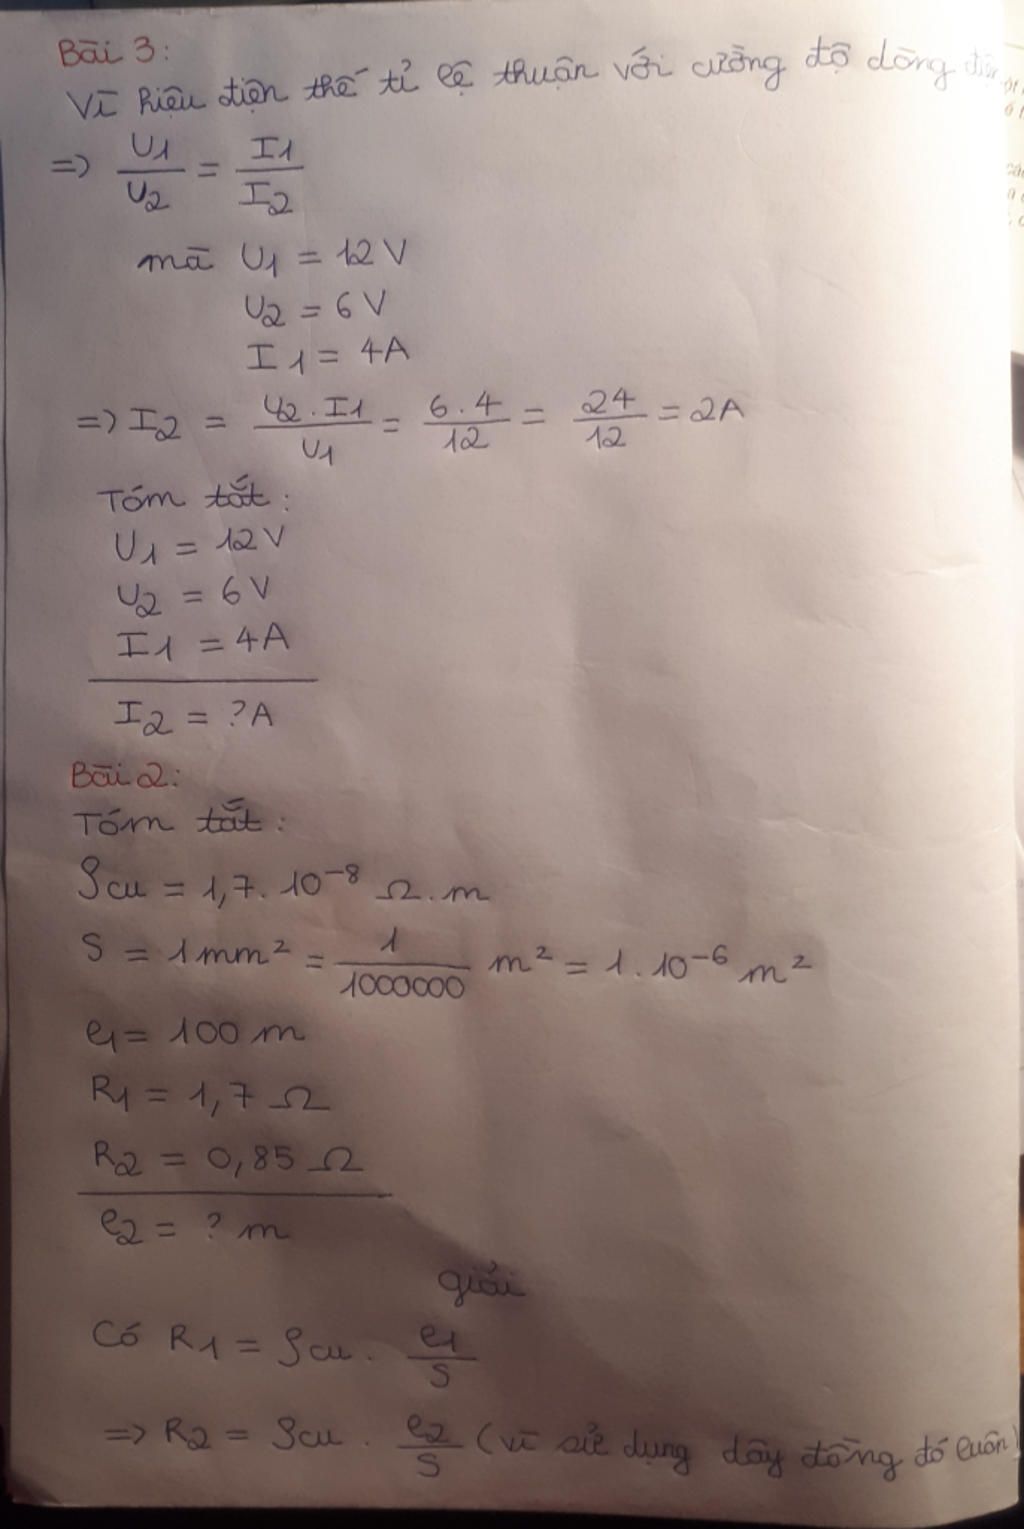 Bài 3:
Vì hiệu điện thế tỉ lệ thuận với cường độ dòng điện
=> U1/U2 = I1/I2
mà U1 = 12V
U2 = 6V
I1 = 4A
=> I2 = U2.I1/U1 = 6.4/12 = 24/12 = 2A
Tóm tắt:
U1 = 12V
U2 = 6V
I1 = 4A
I2 = ?A
Bài 2:
Tóm tắt:
ρcu = 1,7.10⁻⁸ Ω.m
S = 1mm² = 1/1000000 m² = 1.10⁻⁶ m²
l1 = 100 m
R1 = 1,7 Ω
R2 = 0,85 Ω
l2 = ? m
giải
Có R1 = ρcu . l1/S
=> R2 = ρcu . l2/S (vì sử dụng dây đồng đó luôn)